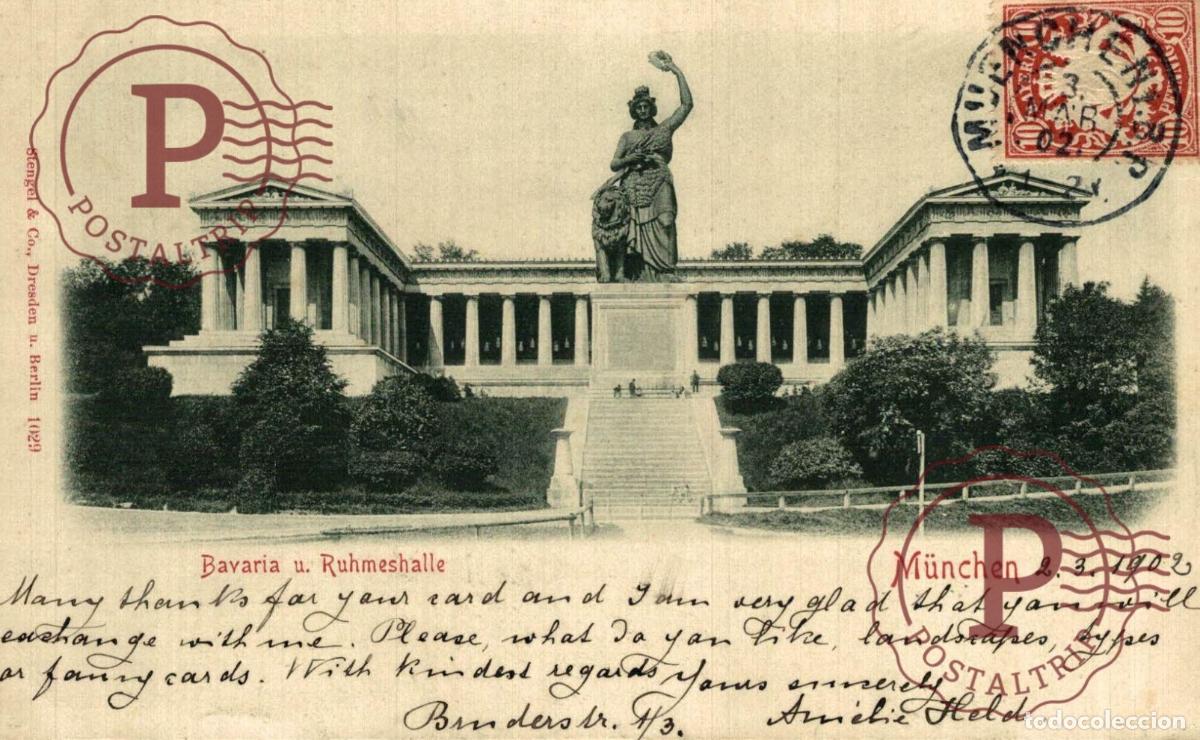 P
POSTALTRIP
MUENCHEN
3.
MAR
02.
10
10
10
10
Stengel & Co., Dresden u. Berlin 1029
Bavaria u. Ruhmeshalle
München 2.3.1902
Many thanks for your card and I am very glad that you will
exchange with me. Please, what do you like, landscapes, types
or fanny cards. With kindest regards yours sincerely
Bruderstr. 1/3. Amélie Held
P
POSTALTRIP
todocoleccion